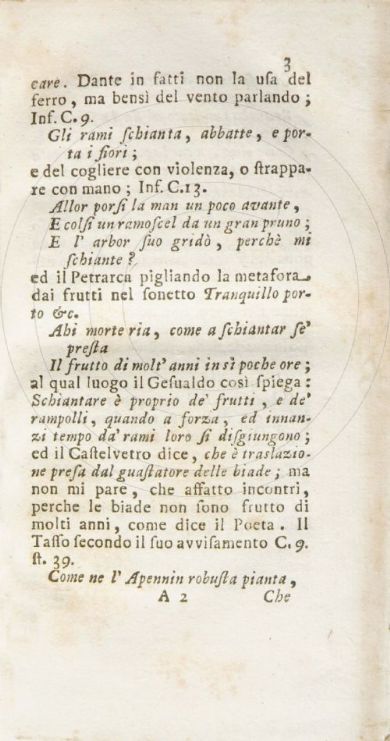 3
care. Dante in fatti non la uſa del
ferro, ma bensì del vento parlando;
Inf. C. 9.
Gli rami ſchianta, abbatte, e por-
ta i fiori;
e del cogliere con violenza, o ſtrappa-
re con mano; Inf. C. 13.
Allor porſi la man un poco avante,
E colſi un ramoſcel da un gran pruno;
E l' arbor ſuo gridò, perchè mi
ſchiante?
ed il Petrarca pigliando la metafora
dai frutti nel ſonetto Tranquillo por-
to &c.
Ahi morte ria, come a ſchiantar ſe'
preſta
Il frutto di molt' anni in sì poche ore;
al qual luogo il Geſualdo così ſpiega:
Schiantare è proprio de' frutti, e de'
rampolli, quando a forza, ed innan-
zi tempo da' rami loro ſi diſgiungono;
ed il Caſtelvetro dice, che è traslazio-
ne preſa dal guaſtatore delle biade; ma
non mi pare, che affatto incontri,
perche le biade non ſono frutto di
molti anni, come dice il Poeta. Il
Taſſo ſecondo il ſuo avviſamento C. 9.
ſt. 39.
Come ne l' Apennin robuſta pianta,
A 2 Che